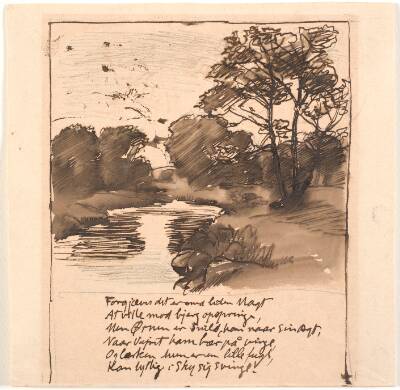 Forgjæves det er med liden Magt
At ville mod bjerg opspringe,
Men Ørnen er snild, han naar sin Agt,
Naar Vejret ham bær på vinge,
Og Lærken hun er en lille fugl,
Kan lystig i Sky sig svinge